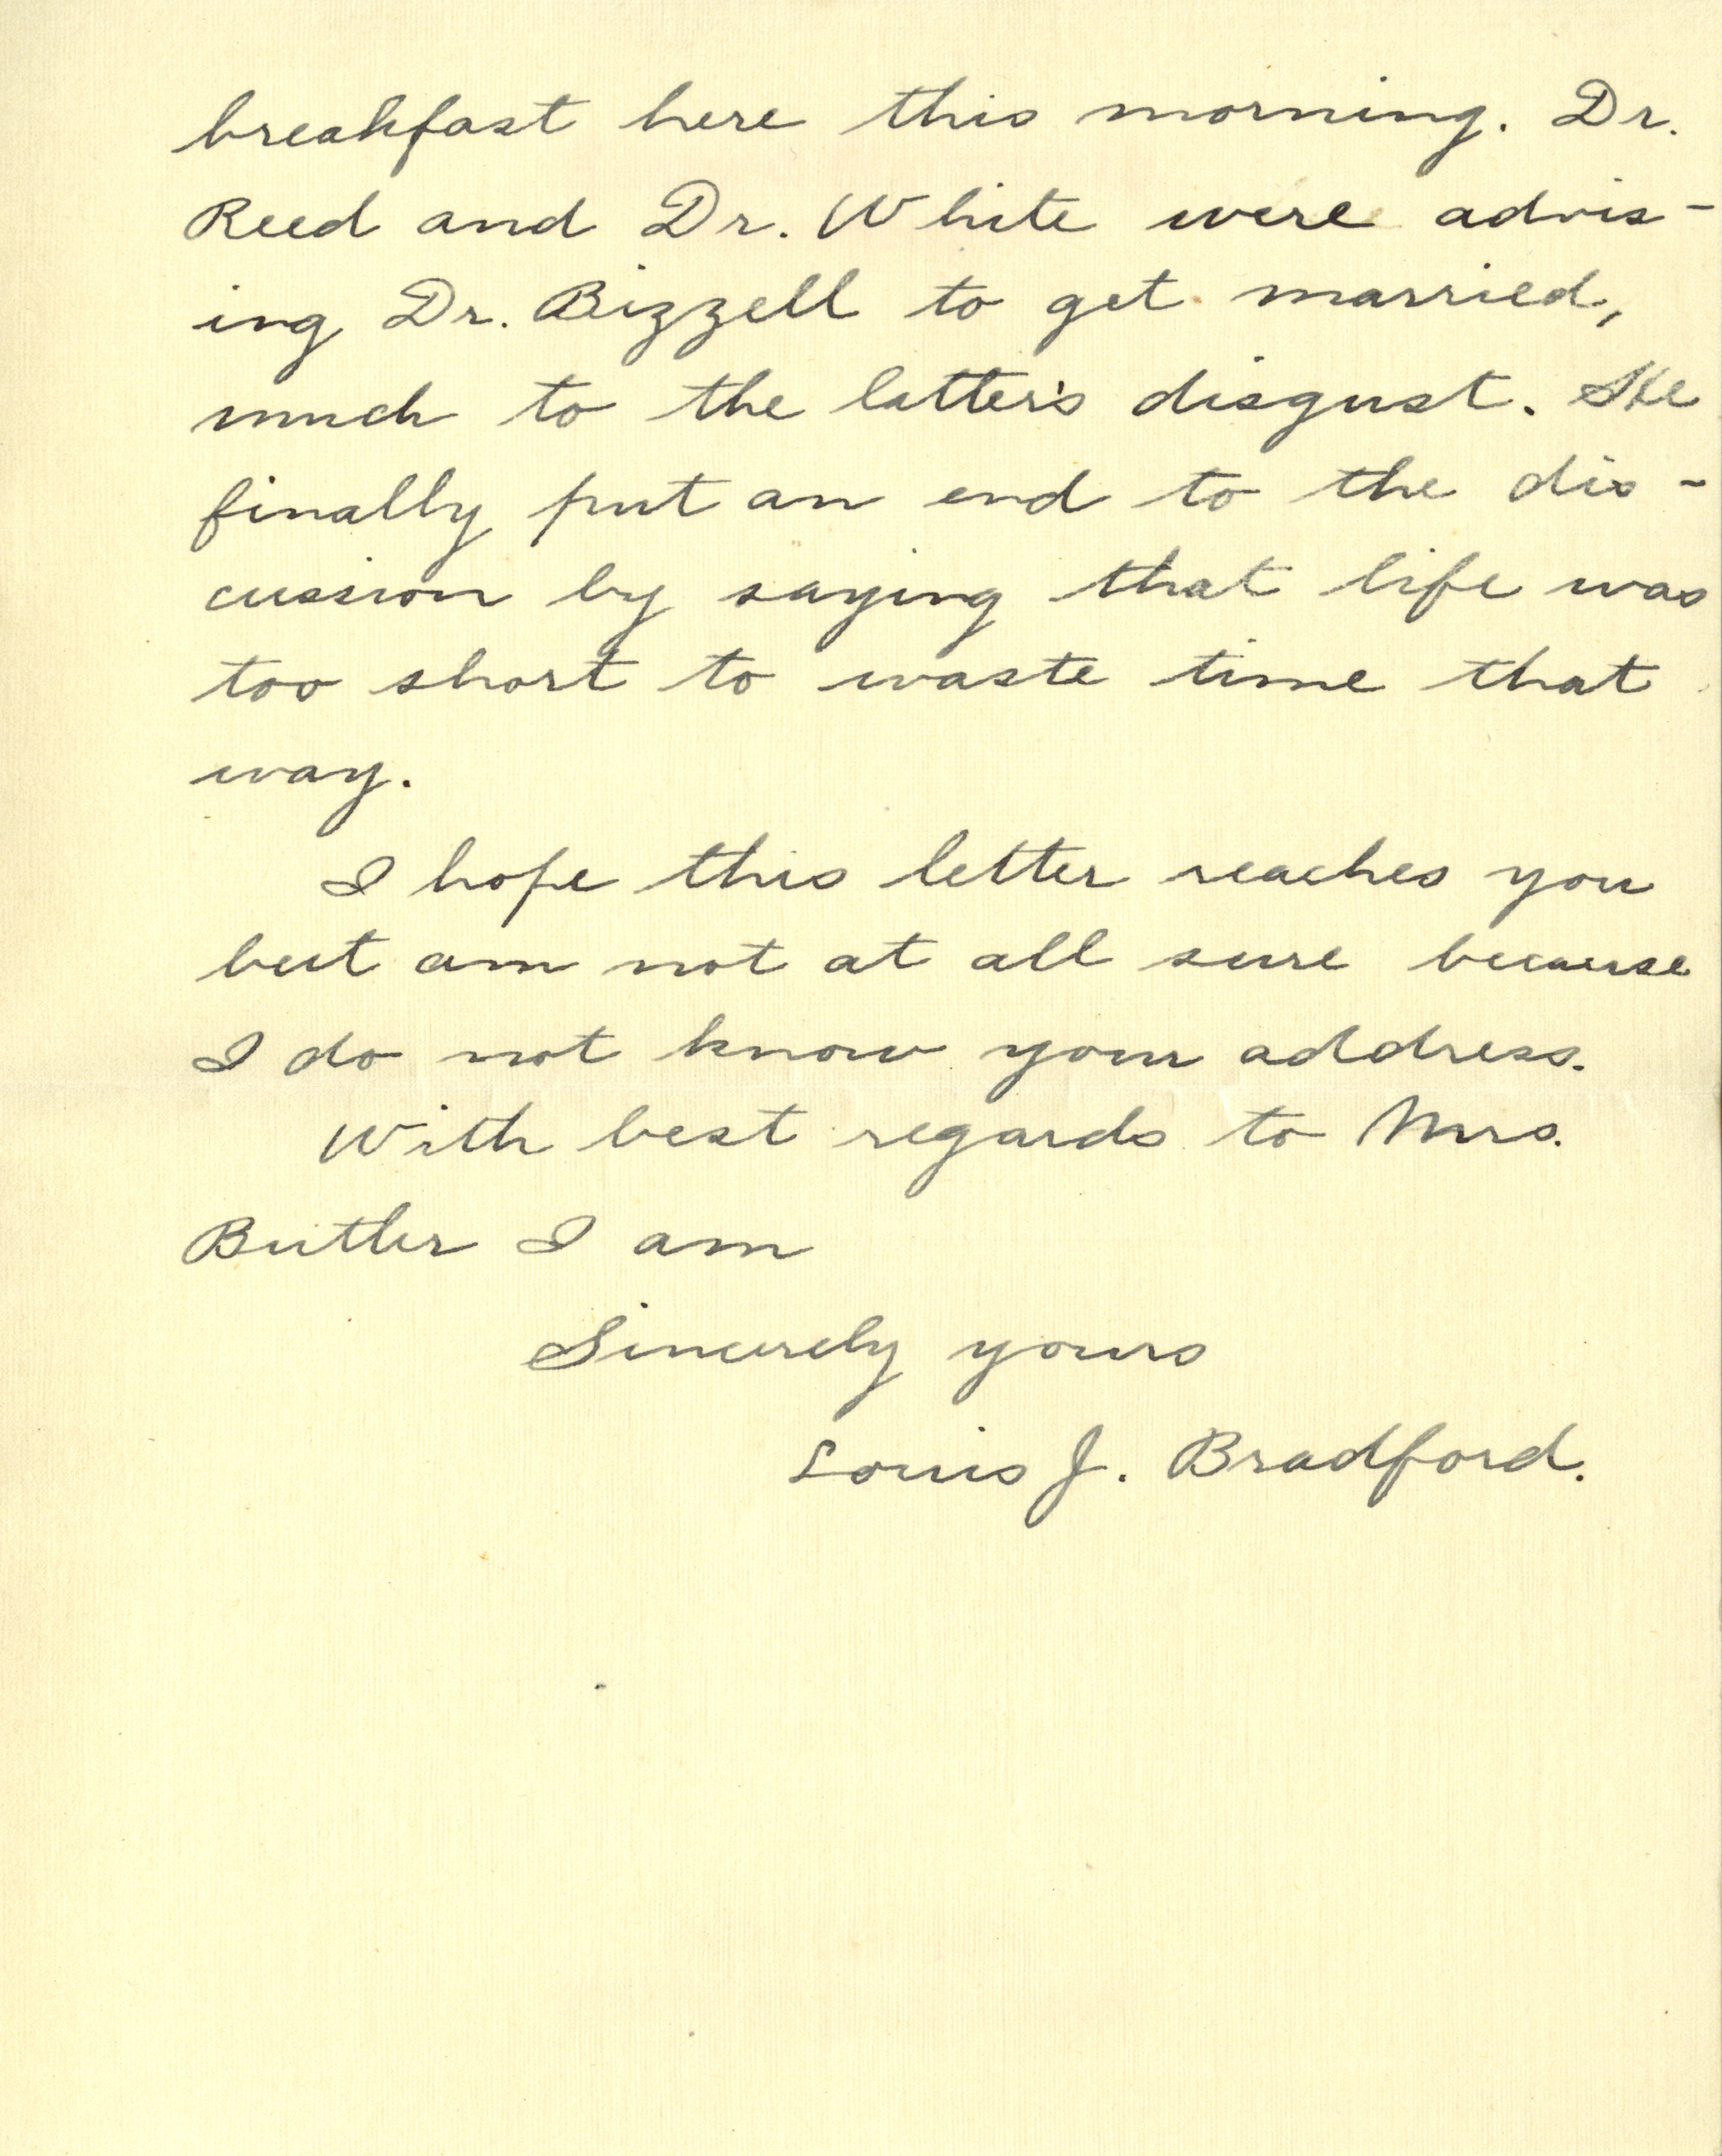 breakfast here this morning. Dr.
Reed and Dr. White were advis-
ing Dr. Bizzell to get married,
much to the latter's disgust. He
finally put an end to the dis-
cussion by saying that life was
too short to waste time that
way.
I hope this letter reaches you
but am not at all sure because
I do not know your address.
With best regards to Mrs.
Butler I am
Sincerely yours
Louis J. Bradford.